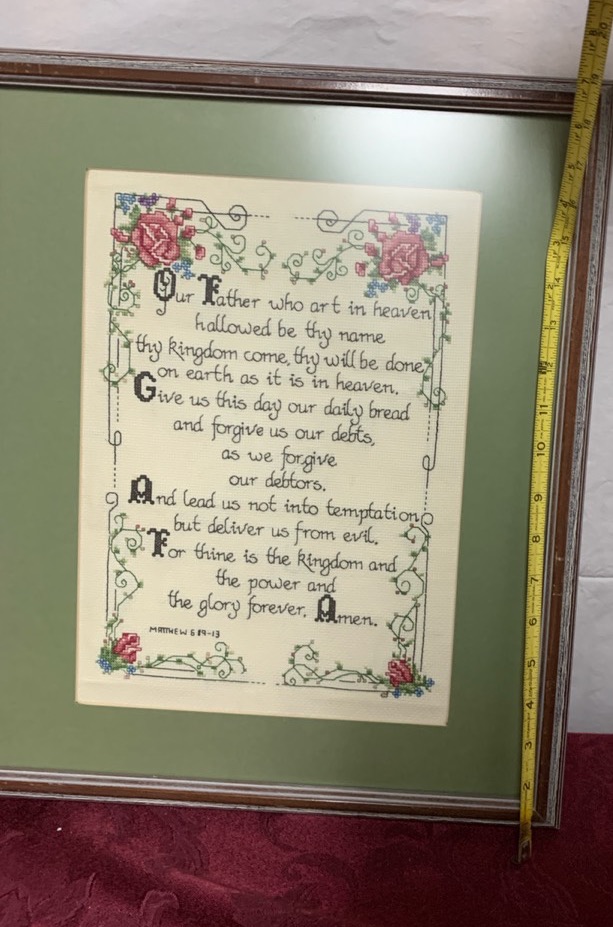 Our Father who art in heaven
hallowed be thy name
thy kingdom come, thy will be done,
on earth as it is in heaven.
Give us this day our daily bread
and forgive us our debts,
as we forgive
our debtors.
And lead us not into temptation,
but deliver us from evil.
For thine is the kingdom and
the power and
the glory forever. Amen.
MATTHEW 6:9-13
2
3
4
5
6
7
8
9
10
11